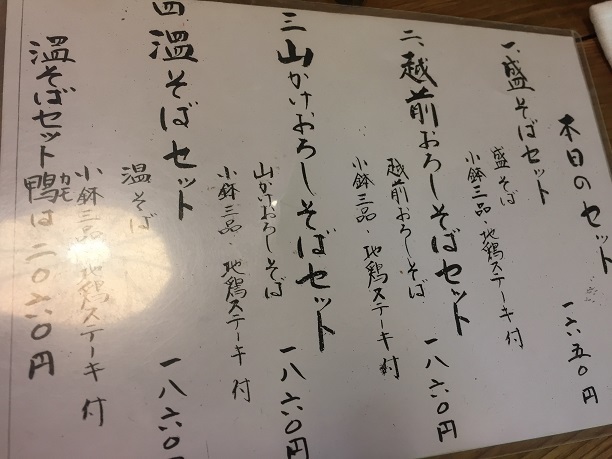 本日のセット
一、盛そばセット 一六五〇円
盛そば
小鉢三品・地鶏ステーキ 付
二、越前おろしそばセット 一八六〇円
越前おろしそば
小鉢三品・地鶏ステーキ 付
三 山かけおろしそばセット 一八六〇円
山かけおろしそば
小鉢三品・地鶏ステーキ 付
四 温そばセット 一八六〇
温そば
小鉢三品・地鶏ステーキ 付
温そばセット鴨カモは二〇六〇円